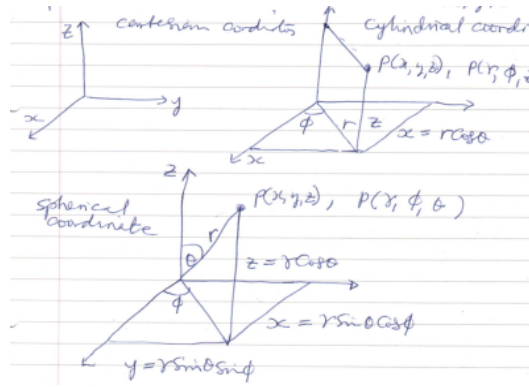 z cartesian cordits cylindrical coordi
P(x,y,z), P(r, ϕ,
y
x
ϕ r z x = rcosθ
x
z
spherical coordinate
P(x,y,z), P(r, ϕ, θ)
r
θ
z = rcosθ
ϕ
x = rsinθcosϕ
y = rsinθsinϕ